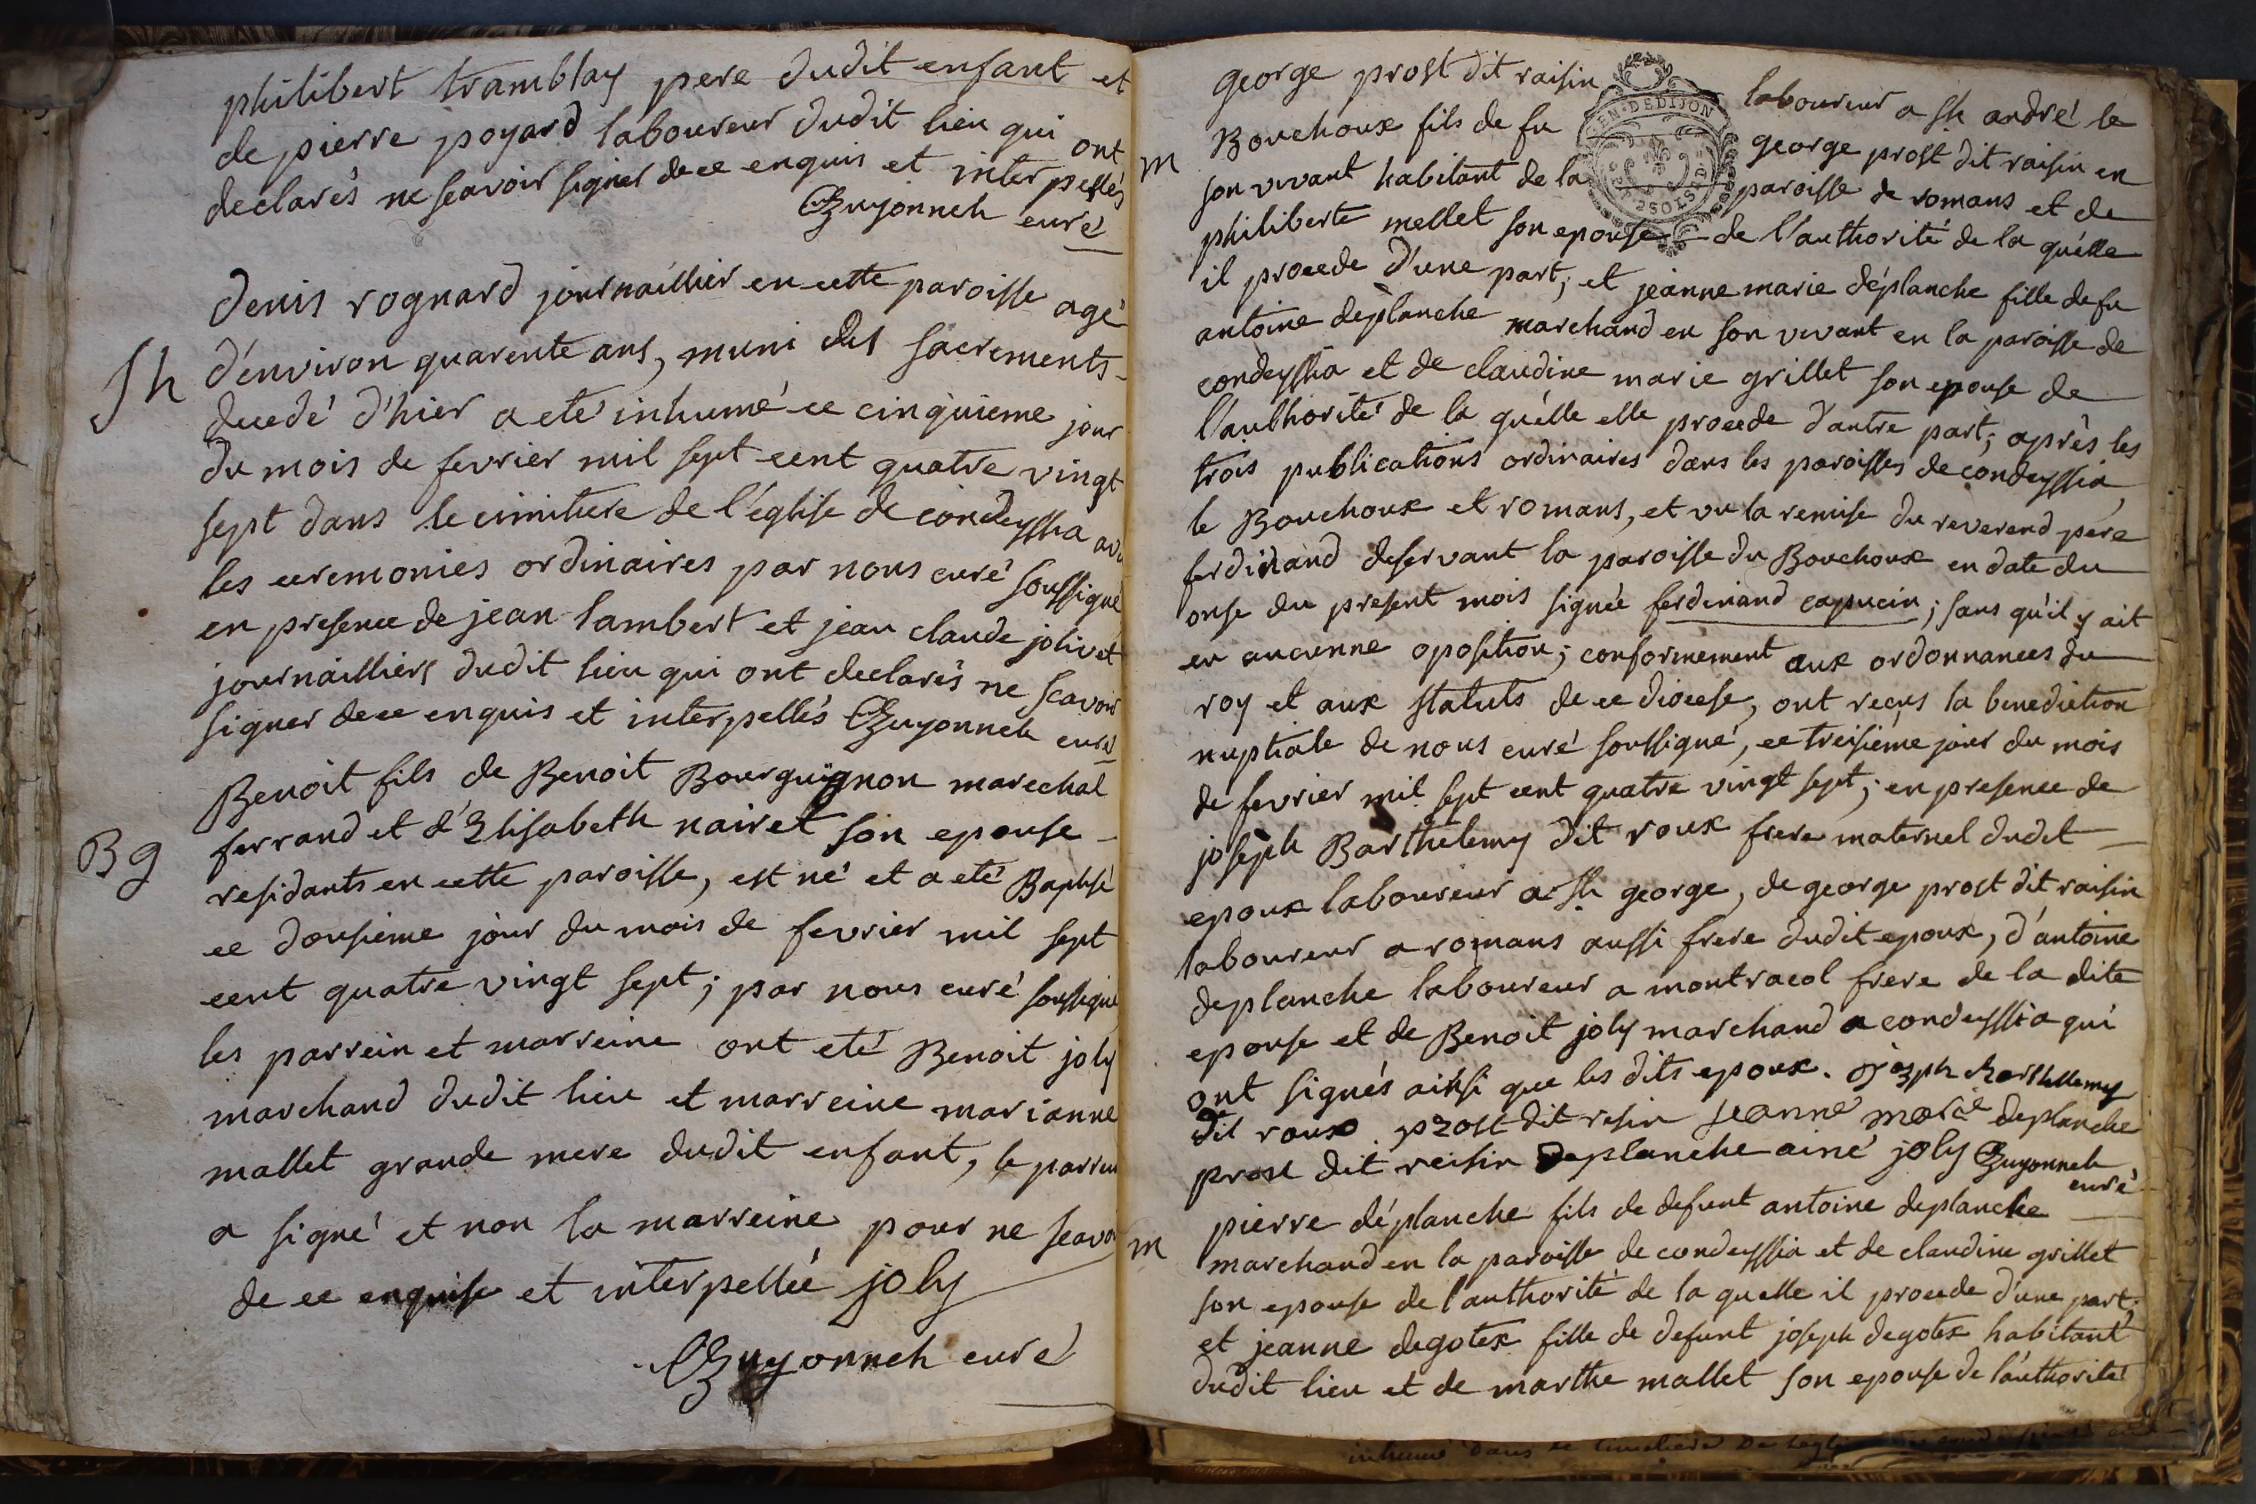 philibert tramblay pere dudit enfant et
de pierre poyard laboureur dudit lieu qui ont
declarés ne scavoir signer de ce enquis et interpellés
Guyonneh curé
Sh
denis rognard journaillier en cette paroisse agé
d'environ quarente ans, muni des sacrements
decedé d'hier a eté inhumé ce cinquieme jour
du mois de fevrier mil sept cent quatre vingt
sept dans le cimitiere de l'église de condeyssia avec
les ceremonies ordinaires par nous curé soussigné
en presence de jean lambert et jean claude jolivet
journailliers dudit lieu qui ont declarés ne scavoir
signer de ce enquis et interpellés Guyonneh curé
Bg
Benoit fils de Benoit Bourguignon marechal
ferrand et d'Elisabeth nairet son epouse
residants en cette paroisse, est né et a eté Baptisé
ce dousieme jour du mois de fevrier mil sept
cent quatre vingt sept; par nous curé soussigné
les parrein et marreine ont eté Benoit joly
marchand dudit lieu et marreine marianne
mallet grande mere dudit enfant, le parrein
a signé et non la marreine pour ne scavoir
de ce enquise et interpellée joly
Guyonneh curé
m
george prost dit raisin laboureur a St andré le
Bouchoux fils de fu george prost dit raisin en
son vivant habitant de la paroisse de romans et de
philiberte mellet son epouse de l'authorité de la quélle
il procede d'une part; et jeanne marie déplanche fille de fu
antoine déplanche marchand en son vivant en la paroisse de
condeyssia et de claudine marie grillet son epouse de
l'authorité de la quélle elle procede d'autre part; après les
trois publications ordinaires dans les paroisses de condeyssia,
le Bouchoux et romans, et vu la remise du reverend père
ferdinand deservant la paroisse du Bouchoux en date du
onse du present mois signée ferdinand capucin; sans qu'il y ait
eu aucunne oposition; conformement aux ordonnances du
roy et aux statuts de ce diocese, ont reçus la benediction
nuptiale de nous curé soussigné, ce treisiéme jour du mois
de fevrier mil sept cent quatre vingt sept; en presence de
joseph Barthelemy dit roux frere maternel dudit
epoux laboureur a St george, de george prost dit raisin
laboureur a romans aussi frere dudit epoux, d'antoine
deplanche laboureur a montracol frere de la dite
epouse et de Benoit joly marchand a condeyssia qui
ont signés ainsi que les dits epoux. Barthellemy
dit roux prost dit resin jeanne marie deplanche
prost dit reisin Deplanche ainé joly Guyonneh
curé
m
pierre déplanche fils de defunt antoine deplanche
marchand en la paroisse de condeyssia et de claudine grillet
son epouse de l'authorité de la quelle il procede d'une part;
et jeanne degotex fille de defunt joseph degotex habitant
dudit lieu et de marthe mallet son epouse de l'authorité
GEN. DE DIJON
inhumé dans le cimetiere de